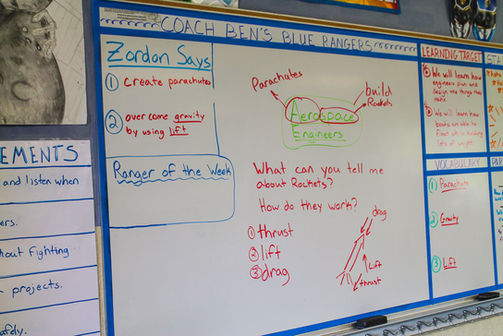 COACH BEN'S BLUE RANGERS
Zordon Says
① create parachutes
② over come gravity
by using lift
Ranger of the Week
Parachutes
build
Rockets
Aerospace
Engineers
What can you tell me
about Rockets?
How do they work?
① thrust
② lift
③ drag
drag
Lift
thrust
LEARNING TARGET
We will learn how
engineers plan and
design the things they
make.
We will learn
how
boats are able to
float while holding
lots of weight.
VOCABULARY
① Parachute
② Gravity
③ Lift
STA
PAR
EMENTS
and listen when
ers.
hout fighting
r projects.
safely.